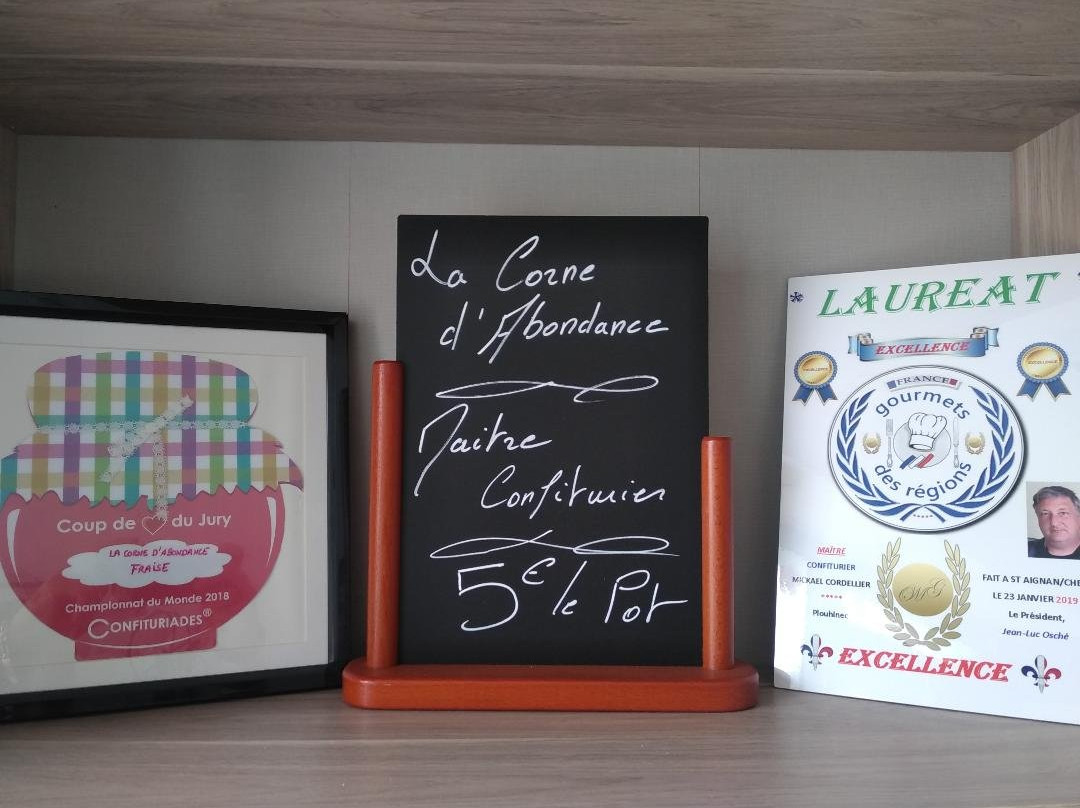 Coup de du Jury
LA CORNE D'ABONDANCE
FRAISE
Championnat du Monde 2018
CONFITURIADES®
La Corne
d'Abondance
Maitre
Confiturier
5€ le Pot
LAUREAT
EXCELLENCE
EXCELLENCE
EXCELLENCE
FRANCE
gourmets
des régions
MAÎTRE
CONFITURIER
MICKAEL CORDELLIER
*****
Plouhinec
MG
FAIT A ST AIGNAN/CHE
LE 23 JANVIER 2019
Le Président,
Jean-Luc Osché
EXCELLENCE